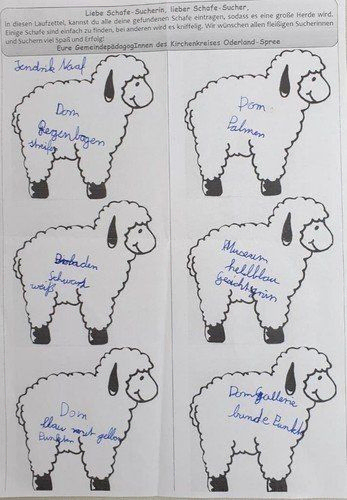 Liebe Schafe-Sucherin, lieber Schafe-Sucher,
In diesen Laufzettel, kannst du alle deine gefundenen Schafe eintragen, sodass es eine große Herde wird.
Einige Schafe sind einfach zu finden, bei anderen wird es knifflig. Wir wünschen allen fleißigen Sucherinnen
und Suchern viel Spaß und Erfolg!
Eure GemeindepädagogInnen des Kirchenkreises Oderland-Spree
Dom
Regenbogen
streifen
Dom
Palmen
Schwarz
weiß
Museum
hellblau
Gesicht grün
Dom
blau mit gelben
Punkten
Dom Gallerie
bunde Punkte